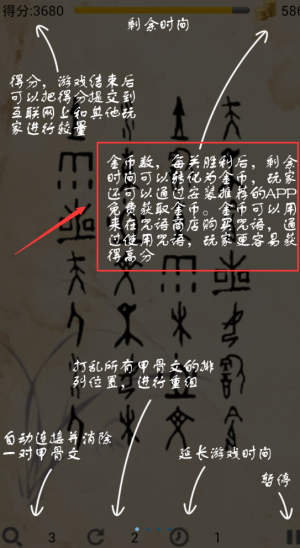 得分:3680
586
剩余时间
得分，游戏结束后
可以把得分提交到
互联网上和其他玩
家进行较量
金币数，每关胜利后，剩余
时间可以转化为金币，玩家
还可以通过安装推荐的APP
免费获取金币。金币可以用
来在咒语商店购买咒语，通
过使用咒语，玩家更容易获
得高分
打乱所有甲骨文的排
列位置，进行重组
自动连接并消除
一对甲骨文
延长游戏时间
暂停
3
2
1